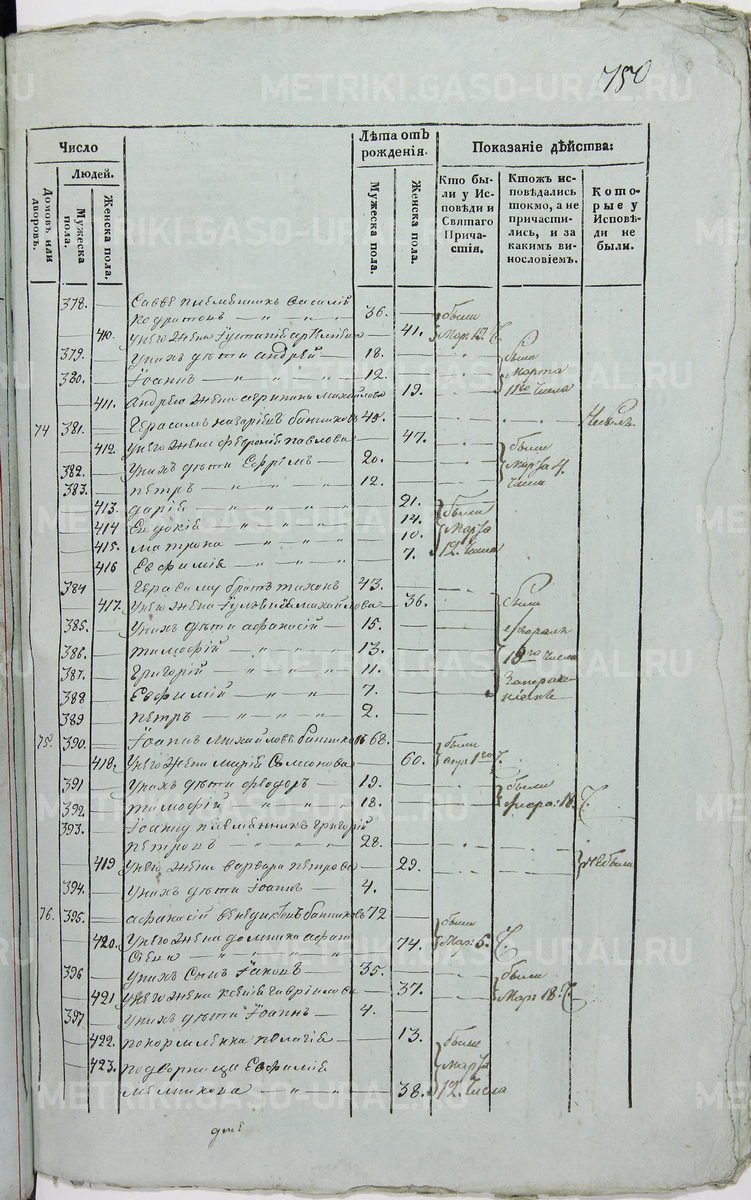 750
Число
Людей.
Домовъ или дворовъ.
Мужеска пола.
Женска пола.
Лѣта отъ рожденія.
Мужеска пола.
Женска пола.
Показаніе дѣйства:
Кто были у Исповѣди и Святаго Причастія.
Ктожъ исповѣдались токмо, а не причастились, и за какимъ винословіемъ.
Которые у Исповѣди не были.
378. Саввѣ племянникъ Василій
Кодратовъ 36. были
410. у него жена 41. Мар: 12. Ч.
379. у нихъ дѣти Андрей 18. были
380. Іоаннъ 12. Марта
411. Андрею жена Михайлова 19. 11го Числа
74 381. Герасимъ Банниковъ 45. Небылъ
412. у него жена Февронія Павлова 47. были
382. у нихъ дѣти Ефремъ 20. Марта 4.
383. Петръ 12. Числа
413. Дарія 21.
414 Евдокія 14. были
415. Матрона 10. Марта
416 Евфимія 7. 12. Числа
384 Герасиму братъ Тихонъ 43.
417. у него жена Михайлова 36. были
385. у нихъ дѣти Афанасій 15. Февраля
386. Тимофей 13. 18го Числа
387. Григорій 11.
388 Евфимій 7.
389 Петръ 2.
75. 390. Іоаннъ Михайловъ Банниковъ 68. были
418. у него жена Марія Симонова 60. апр: 1го Ч.
391 у нихъ дѣти Феодоръ 19. были
392. Тимофей 18. Февра: 18. Ч.
393. Іоанну племянникъ Григорій
Петровъ 28.
419 у него жена Варвара Петрова 29. Небыли
394. у нихъ дѣти Іоаннъ 4.
76. 395. Афанасій Венедиктовъ Банниковъ 72 были
420. у него жена Домника Афана
сіева 74. Мар: 5. Ч.
396 у нихъ сынъ Іаковъ 35. были
421 у него жена Ксенія Гавріилова 37. Мар: 18. Ч.
397 у нихъ дѣти Іоаннъ 4.
422. покормленка Пелагія 13. были
423. подворница Евфимія Марта
Мелникова 38. 12. Числа
METRIKI.GASO-URAL.RU